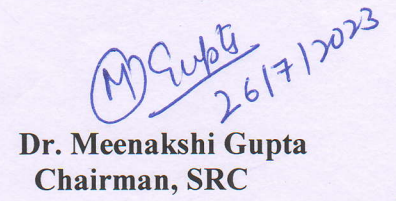 M Gupta
26/7/2023
Dr. Meenakshi Gupta
Chairman, SRC